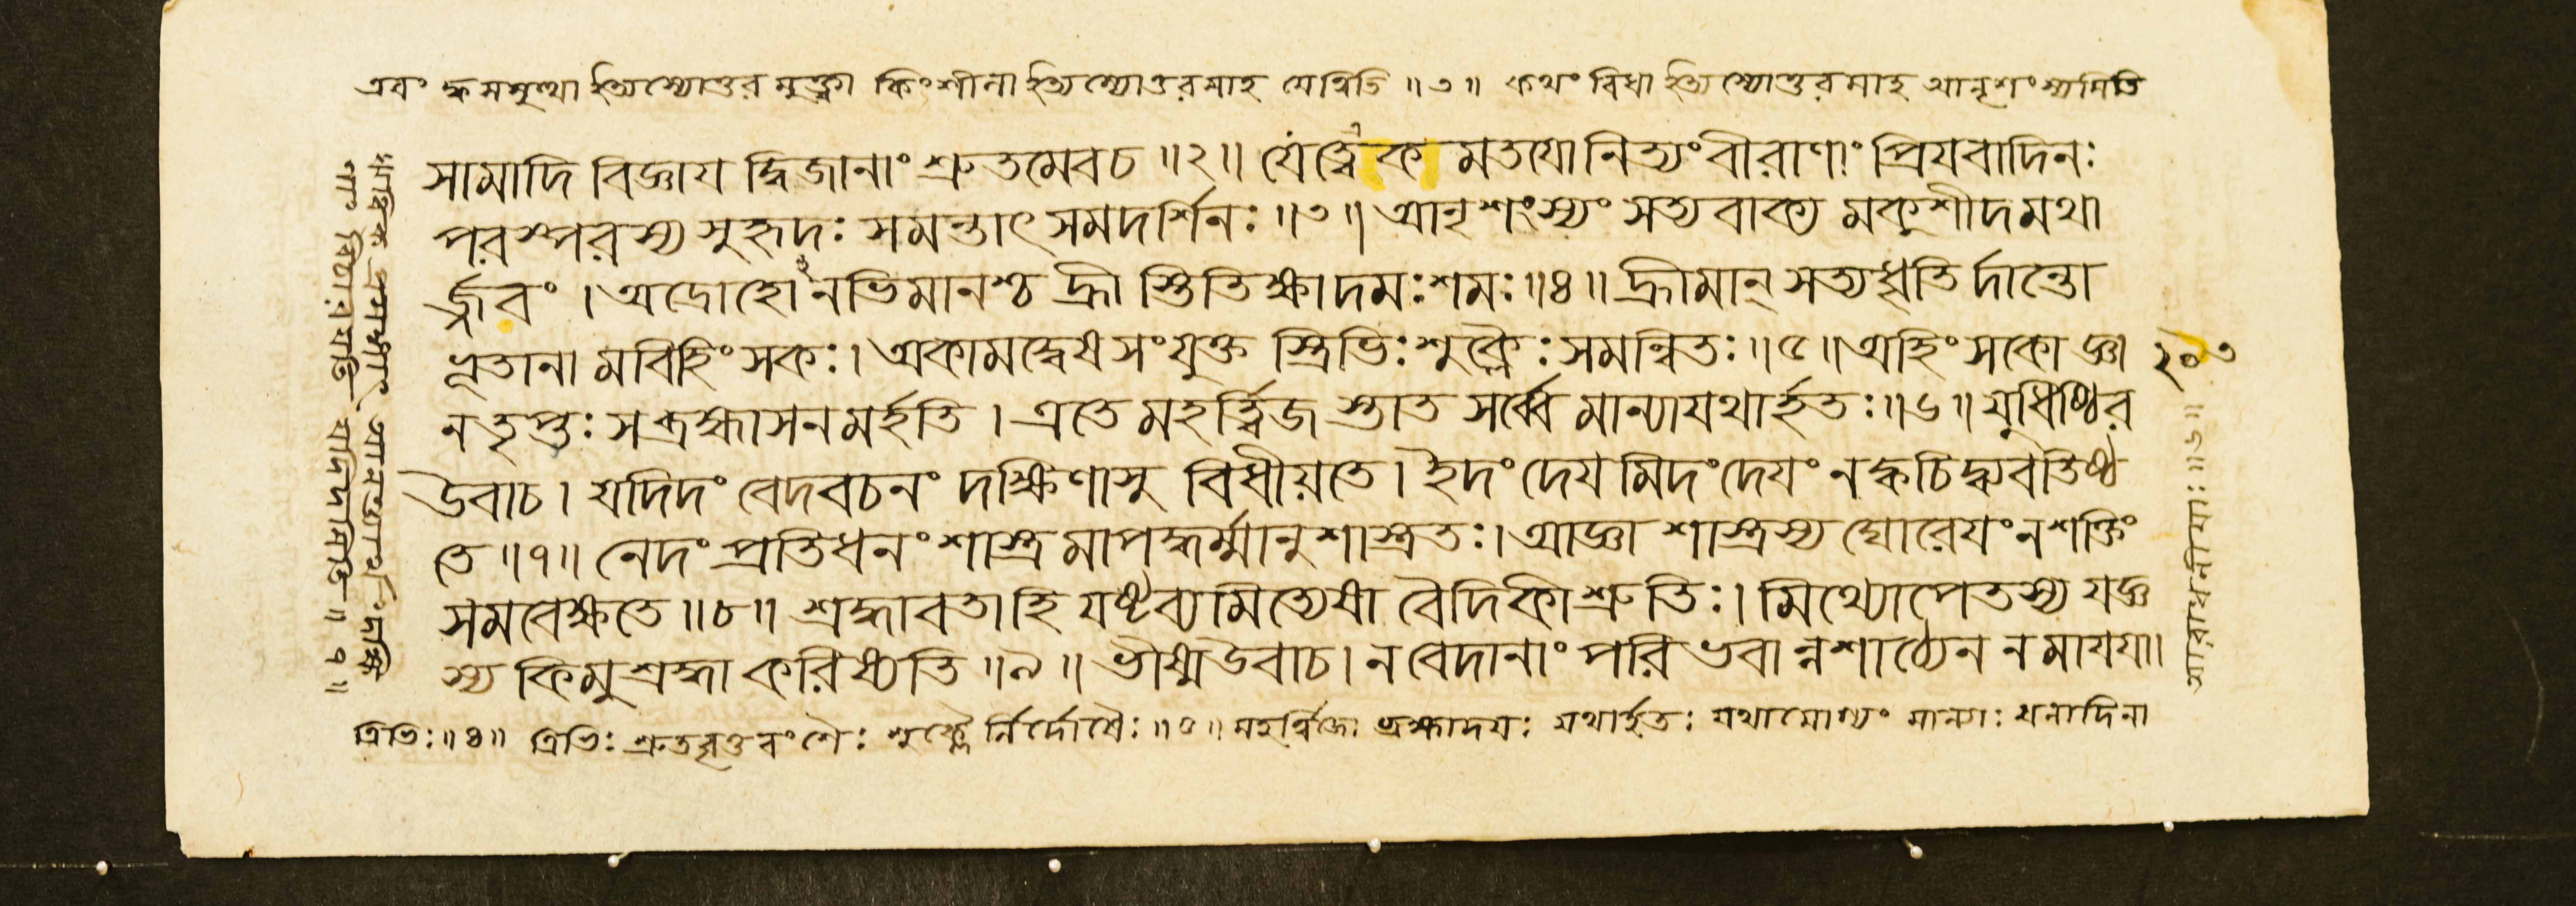 এবং ক্রমমুত্থা ইত্যিস্যোত্তরমুক্ত্বা কিংশীলা ইত্যিস্যোত্তরমাহ যেত্বিতি ॥৩॥ কথং বিধা ইত্যিস্যোত্তরমাহ আনৃশংস্যমিতি
সামাদি বিজ্ঞায দ্বিজানাং শ্রুতমেবচ ॥২॥ যেত্বেক মতযোনিত্যং বীরাণাং প্রিযবাদিনঃ
পরস্পরস্য সুহৃদঃ সমন্তাৎ সমদর্শিনঃ ॥৩॥ আনৃশংস্যং সত্যবাক্য মকুশীদমথা
র্জবং । অদ্রোহো নভিমানশ্চ হ্রী স্তিতিক্ষাদমঃশমঃ ॥৪॥ হ্রীমান্ সত্যধৃতি র্দান্তো
ভূতানা মবিহিংসকঃ। অকামদ্বেষসংযুক্ত স্ত্রিভিঃশুক্লৈঃসমন্বিতঃ ॥৫॥ অহিংসকোজ্ঞা
২০৩
নতৃপ্তঃ সব্রহ্মাসনমর্হতি । এতে মহর্ত্ত্বিজ স্তাত সর্ব্বে মান্যাযথার্হতঃ ॥৬॥ যুধিষ্ঠির
উবাচ। যদিদং বেদবচনং দক্ষিণাসু বিধীয়তে। ইদং দেয মিদংদেযং নক্বচিদ্ব্যবতিষ্ঠ
তে ॥৭॥ নেদং প্রতিধনং শাস্ত্র মাপদ্ধর্ম্মানুশাস্ত্রতঃ। আজ্ঞা শাস্ত্রস্য ঘোরেযং নশক্তিং
সমবেক্ষতে ॥৮॥ শ্রদ্ধাবতা হি যষ্টব্যমিত্যেষা বৈদিকী শ্রুতিঃ। মিথ্যোপেতস্য যজ্ঞ
স্য কিমুশ্রদ্ধা করিষ্যতি ॥৯॥ ভীষ্মউবাচ। নবেদানাং পরিভবা ন্নশাঠ্যেন নমাযযা॥
ত্রিভিঃ॥৪॥ ত্রিভিঃ শ্রুতবৃত্তবংশৈঃ শুক্লৈ র্নির্দোষৈঃ ॥৫॥ মহর্ত্বিজো ব্রহ্মাদযঃ যথার্হতঃ যথাযোগ্যং মান্যাঃ ধনাদিনা
আরাধনীযাঃ॥৬॥
ণাং বিচারযতি যদিদমিতি ॥৭॥